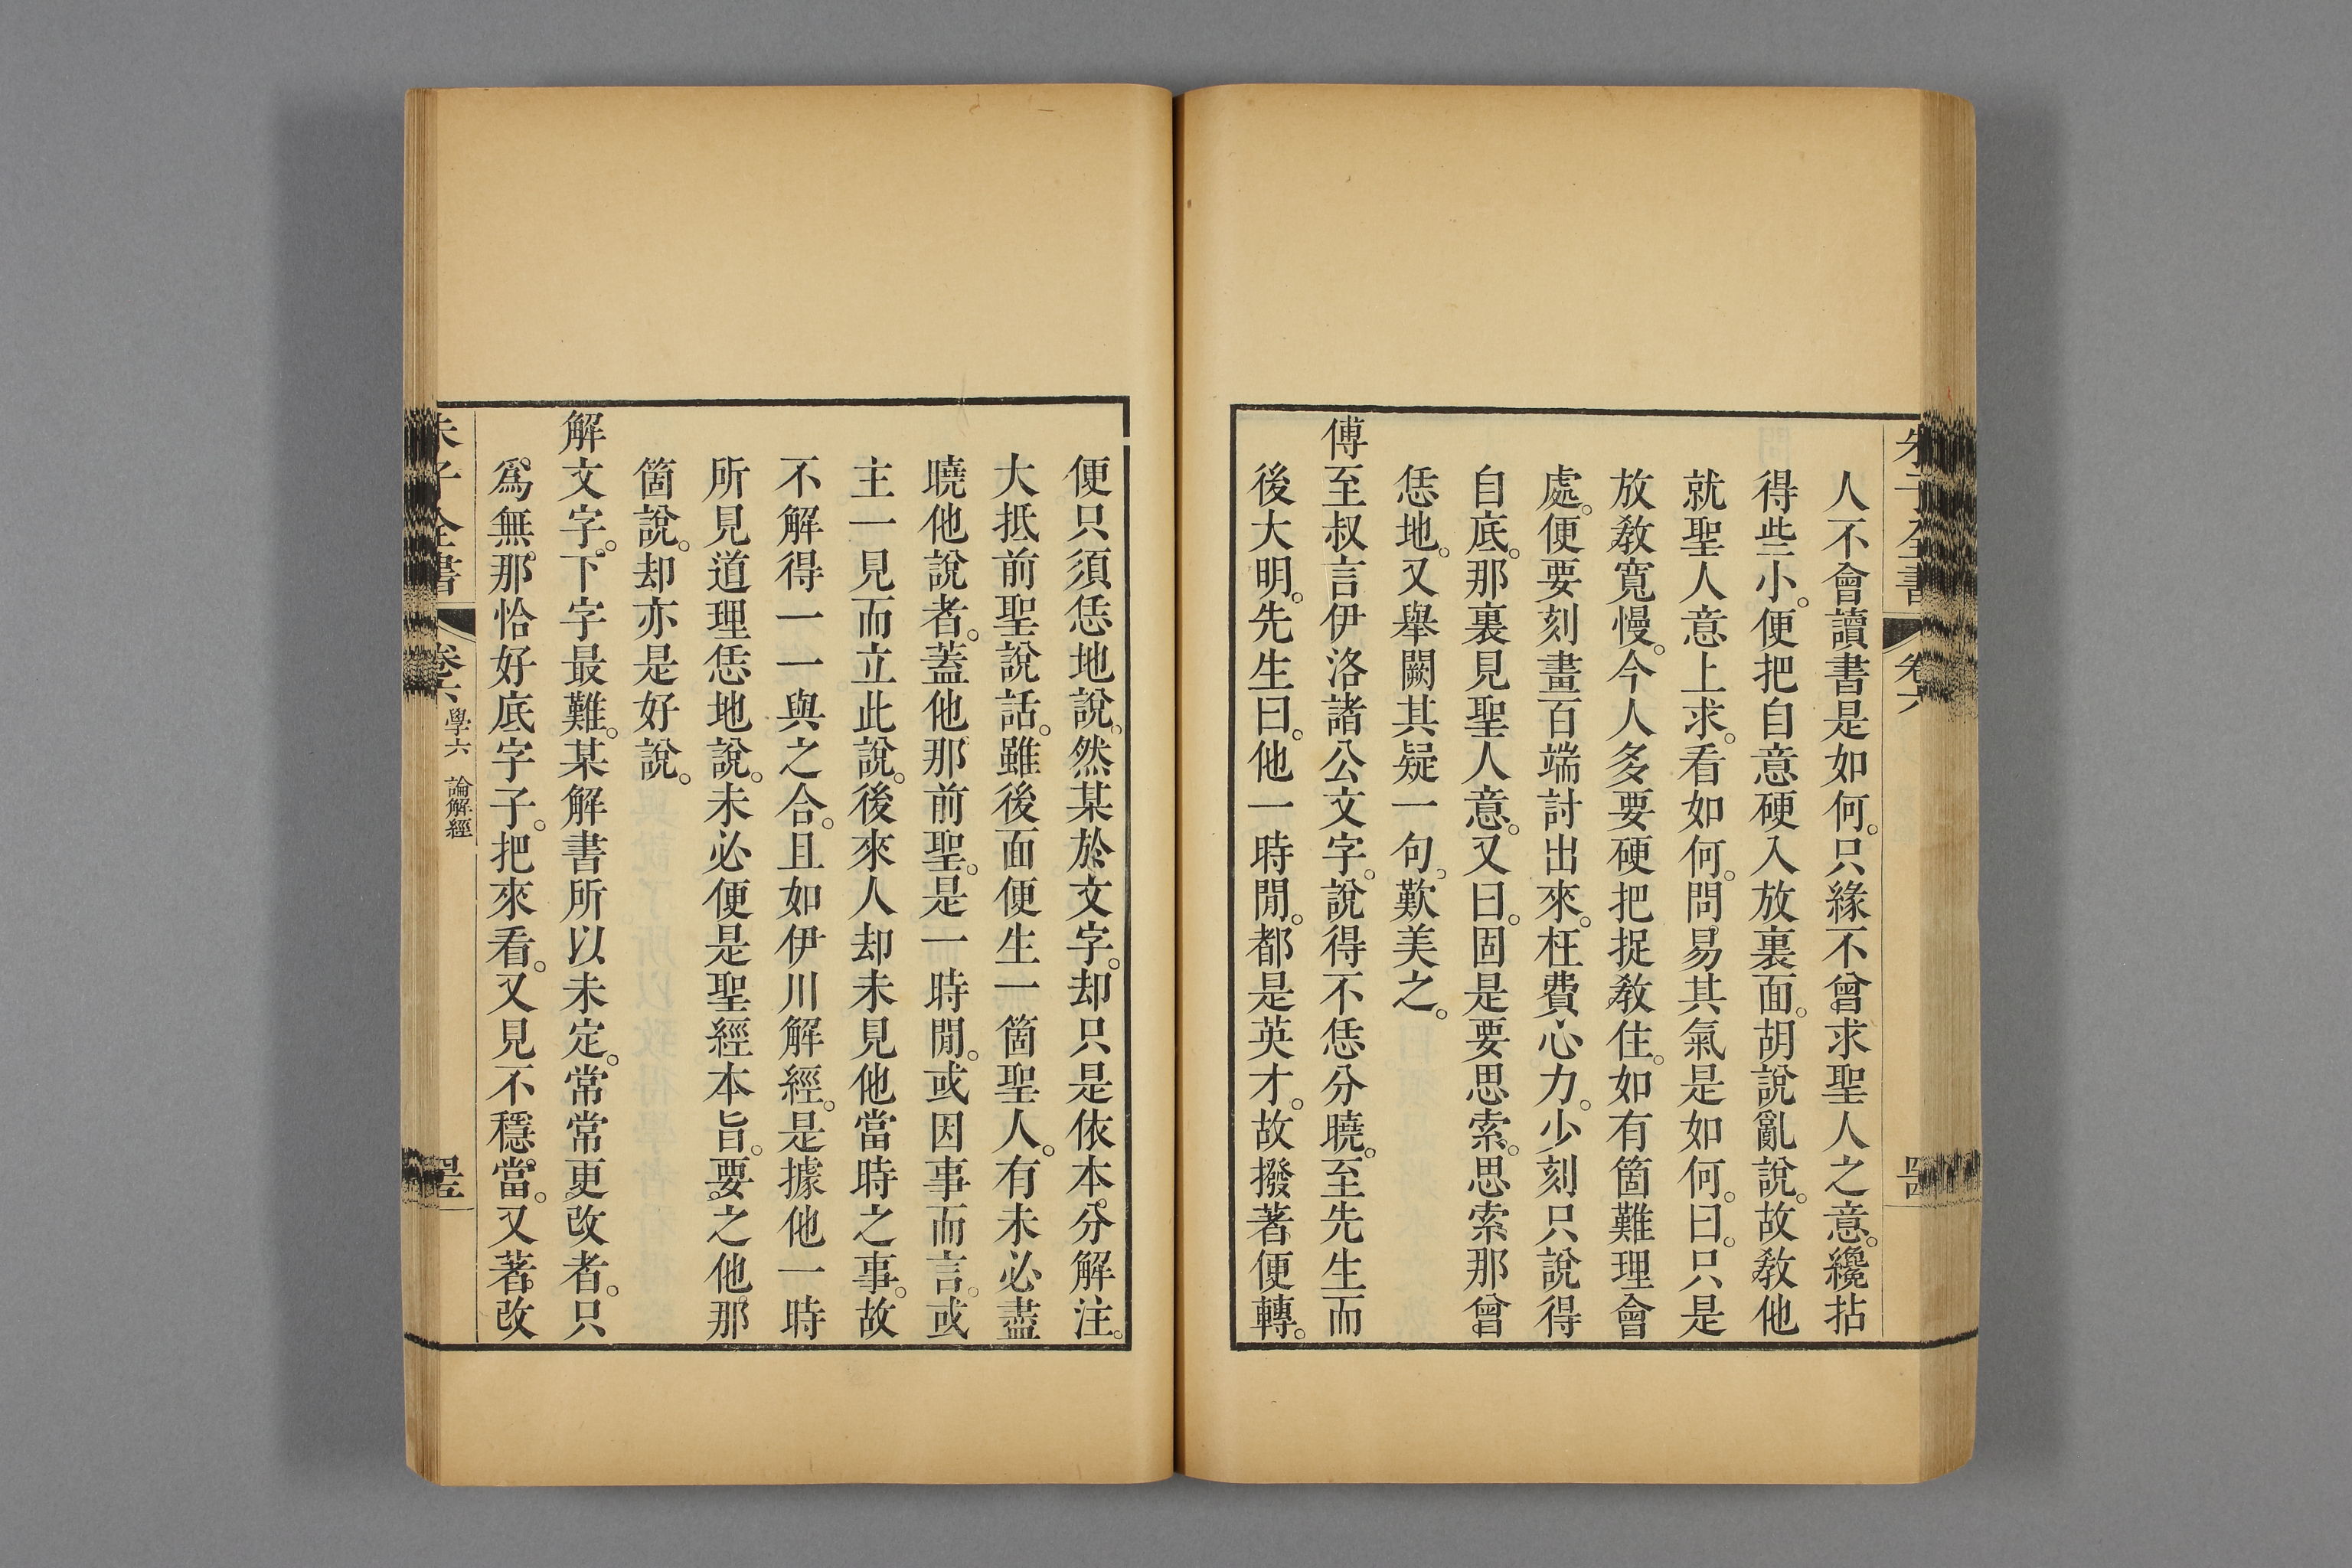 朱子全書 卷六
人不會讀書是如何。只緣不曾求聖人之意。纔拈
得些小。便把自意硬入放裏面。胡說亂說。故敎他
就聖人意上求。看如何。問易其氣是如何。曰。只是
放敎寬慢。今人多要硬把捉敎住。如有箇難理會
處。便要刻畫百端討出來。枉費心力。少刻只說得
自底。那裏見聖人意。又曰。固是要思索。思索那曾
恁地。又舉闕其疑一句。歎美之。
傅至叔言伊洛諸公文字。說得不恁分曉。至先生而
後大明。先生曰。他一時閒。都是英才。故撥著便轉。
便只須恁地說。然某於文字。却只是依本分解注。
大抵前聖說話。雖後面便生一箇聖人。有未必盡
曉他說者。蓋他那前聖。是一時閒。或因事而言。或
主一見而立此說。後來人却未見他當時之事。故
不解得一一與之合。且如伊川解經。是據他一時
所見道理恁地說。未必便是聖經本旨。要之他那
箇說。却亦是好說。
解文字。下字最難。某解書所以未定。常常更改者。只
爲無那恰好底字子。把來看。又見不穩當。又著改
朱子全書 卷六 學六 論解經